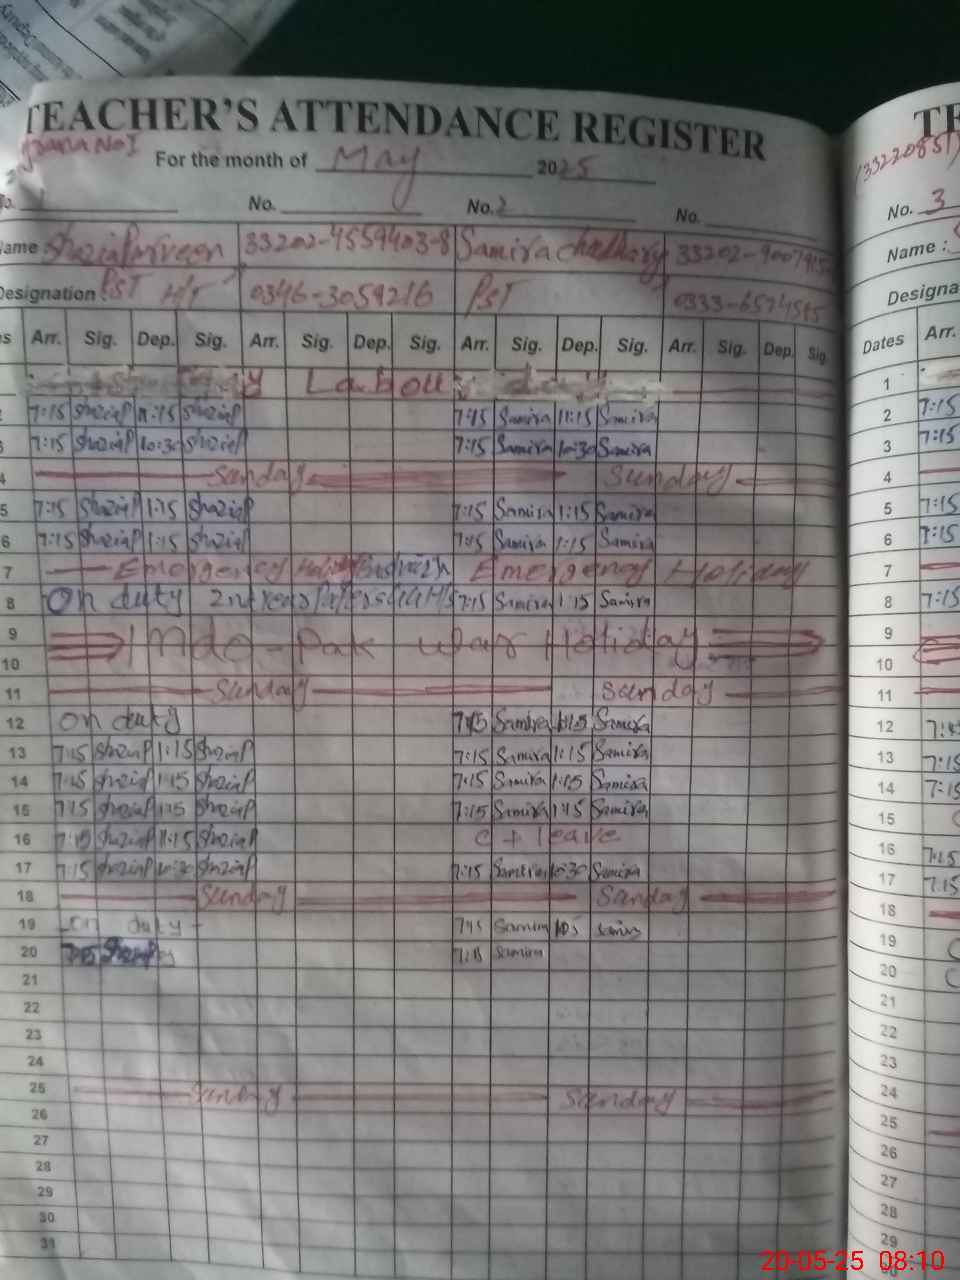 TEACHER'S ATTENDANCE REGISTER
For the month of May 2025
No. 1 No. No. 2 No.
Name : Shazia Parveen 33202-4559403-8 Samira chudhary 33202-9007915
Designation : PST H/T 0346-3059216 PST 0333-6574545
Arr. Sig. Dep. Sig. Arr. Sig. Dep. Sig. Arr. Sig. Dep. Sig. Arr. Sig. Dep. Sig
Labour day
2 7:15 ShaziaP 11:15 ShaziaP 7:15 Samira 11:15 Samira
3 7:15 ShaziaP 10:30 ShaziaP 7:15 Samira 10:30 Samira
4 Sunday Sunday
5 7:15 ShaziaP 1:15 ShaziaP 7:15 Samira 1:15 Samira
6 7:15 ShaziaP 1:15 ShaziaP 7:15 Samira 1:15 Samira
7 Emergency Holiday Emergency Holiday
8 On duty 7:15 Samira 1:15 Samira
9 Indo-Pak war Holiday
10
11 Sunday Sunday
12 On duty 7:15 Samira 1:15 Samira
13 7:15 ShaziaP 1:15 ShaziaP 7:15 Samira 1:15 Samira
14 7:15 ShaziaP 1:15 ShaziaP 7:15 Samira 1:15 Samira
15 7:15 ShaziaP 1:15 ShaziaP 7:15 Samira 1:15 Samira
16 7:15 ShaziaP 11:15 ShaziaP leave
17 7:15 ShaziaP 10:30 ShaziaP 7:15 Samira 10:30 Samira
18 Sunday Sunday
19 on duty 7:15 Samira Samira
20 7:15 Samira
21
22
23
24
25 Sunday Sunday
26
27
28
29
30
31
TE
(3322085
No. 3
Name :
Designa
Dates Arr.
1
2 7:15
3 7:15
4
5 7:15
6 7:15
7
8 7:15
9
10
11
12
13 7:15
14 7:15
15
16 7:15
17 7:15
18
19
20
21
22
23
24
25
26
27
28
29
20-05-25 08:10